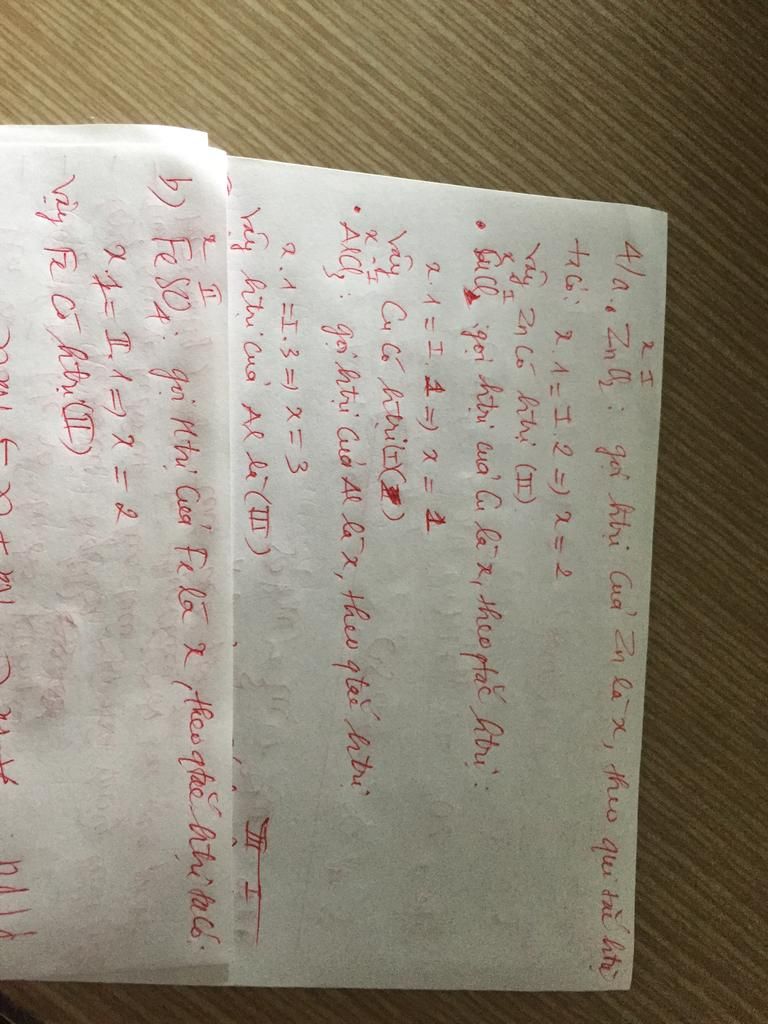 x I
4/a. ZnCl₂: gọi htrị của Zn là x, theo qui tắc htrị
ta có: x.1 = I.2 => x = 2
Vậy Zn có htrị (II)
x I
• CuCl: gọi htrị của Cu là x, theo qtắc htrị:
x.1 = I.1 => x = 1
Vậy Cu có htrị (I)
x I
• AlCl₃: gọi htrị của Al là x, theo qtắc htrị
x.1 = I.3 => x = 3
Vậy htrị của Al là (III)
III I
x II
b) FeSO₄: gọi htrị của Fe là x, theo qtắc htrị ta có:
x.1 = II.1 => x = 2
Vậy Fe có htrị (II)